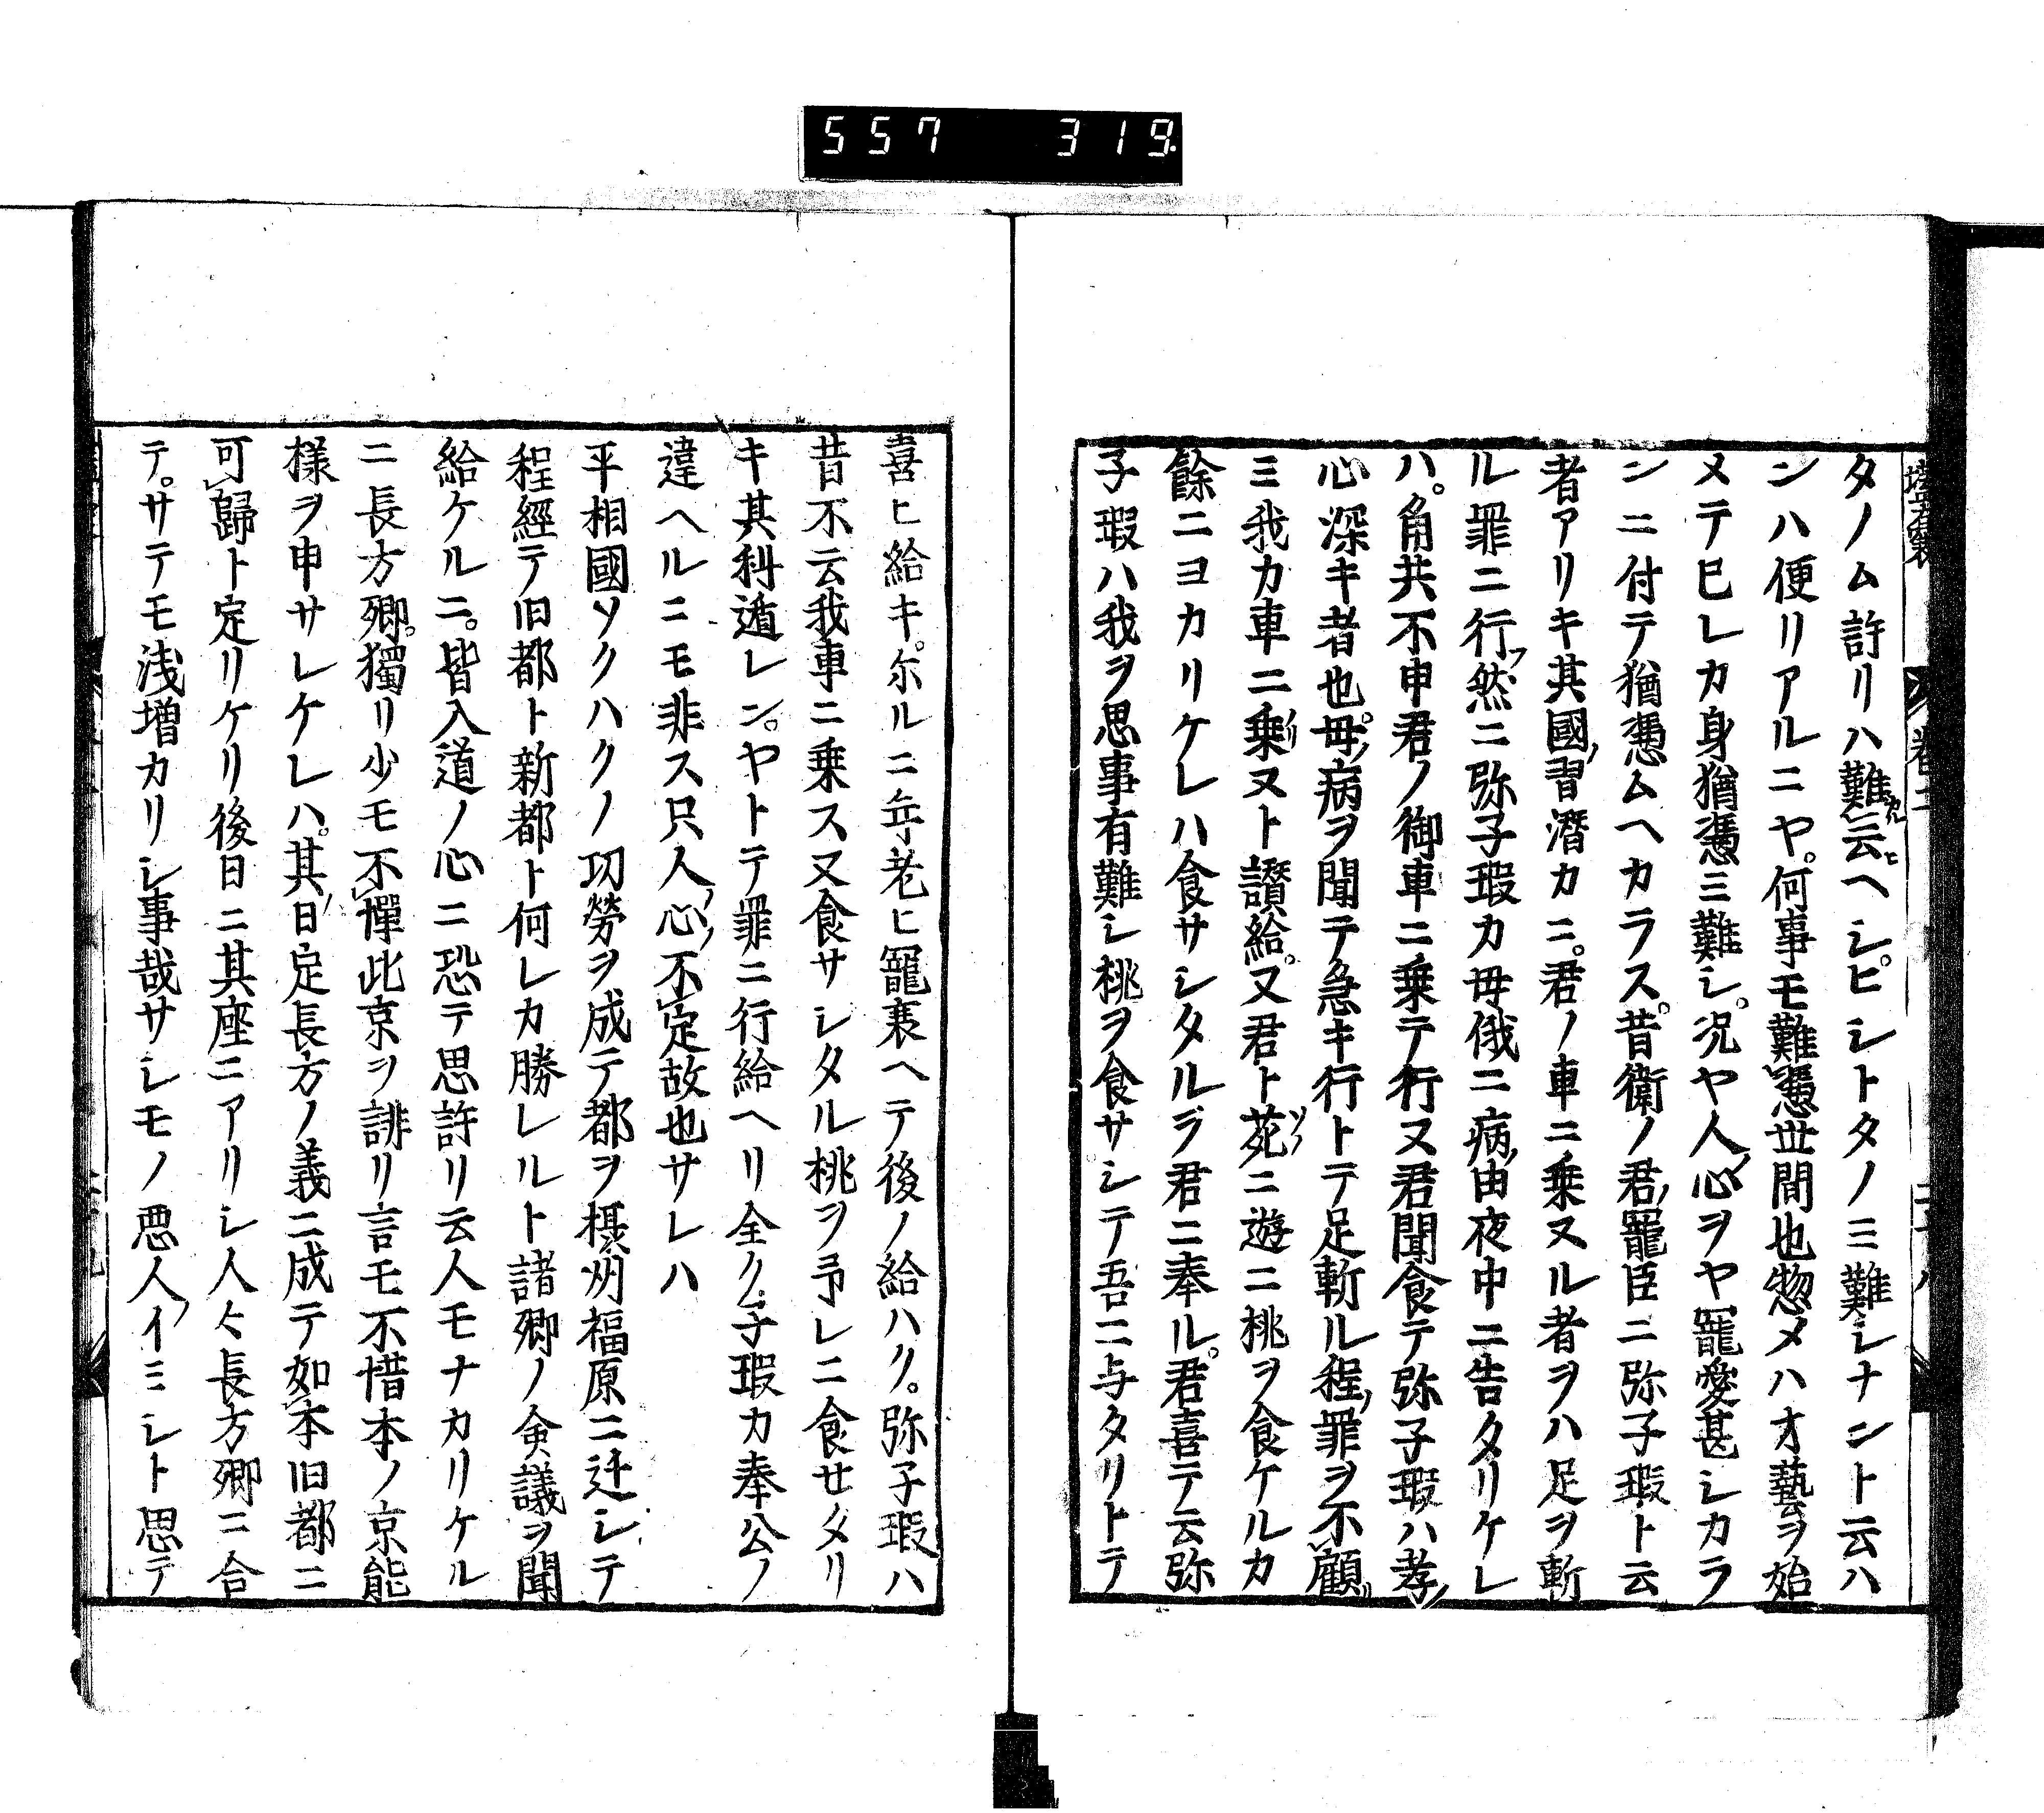 557 319
タノム許リハ難云ヘシ。ヒシトタノミ難シナント云ハ
ンハ便リアルニヤ。何事モ難憑世間也惣メハオ藝ヲ始
メテ已レカ身猶憑ミ難シ。况ヤ人ノ心ヲヤ寵愛甚シカラ
ンニ付テ猶憑ムヘカラス。昔衛ノ君ノ寵臣ニ弥子瑕ト云
者アリキ其國ノ習潛カニ。君ノ車ニ乗ヌル者ヲハ足ヲ斬
ル罪ニ行フ然ニ弥子瑕カ母俄ニ病ノ由夜中ニ告タリケレ
ハ。角共不申君ノ御車ニ乗テ行ヌ君聞食テ弥子瑕ハ孝ノ
心深キ者也。母ノ病ヲ聞テ急キ行トテ足斬ル程ノ罪ヲ不顧
ミ我カ車ニ乗リヌト讃給。又君ト菀ニ遊ニ桃ヲ食ケルカ
餘ニヨカリケレハ食サシタルヲ君ニ奉ル。君喜テ云弥
子瑕ハ我ヲ思事有難シ桃ヲ食サシテ吾ニ与タリトテ
喜ヒ給キ。尓ルニ年老ヒ寵衰ヘテ後ノ給ハク。弥子瑕ハ
昔不云我車ニ乗ス又食サシタル桃ヲ予レニ食セタリ
キ其科遁レン。ヤトテ罪ニ行給ヘリ全ク子瑕カ奉公ノ
違ヘルニモ非ス只人ノ心ノ不定故也サレハ
平相國ソクハクノ功勞ヲ成テ都ヲ摂州福原ニ迁シテ
程經テ旧都ト新都ト何レカ勝レルト諸卿ノ僉議ヲ聞
給ケルニ。皆入道ノ心ニ恐テ思許リ云人モナカリケル
ニ長方卿。獨リ少モ不憚此京ヲ誹リ言モ不惜本ノ京能
樣ヲ申サレケレハ。其日ノ定長方ノ義ニ成テ如本旧都ニ
可歸ト定リケリ後日ニ其座ニアリシ人々長方卿ニ合
テ。サテモ浅増カリシ事哉サシモノ悪人ノイミシト思テ